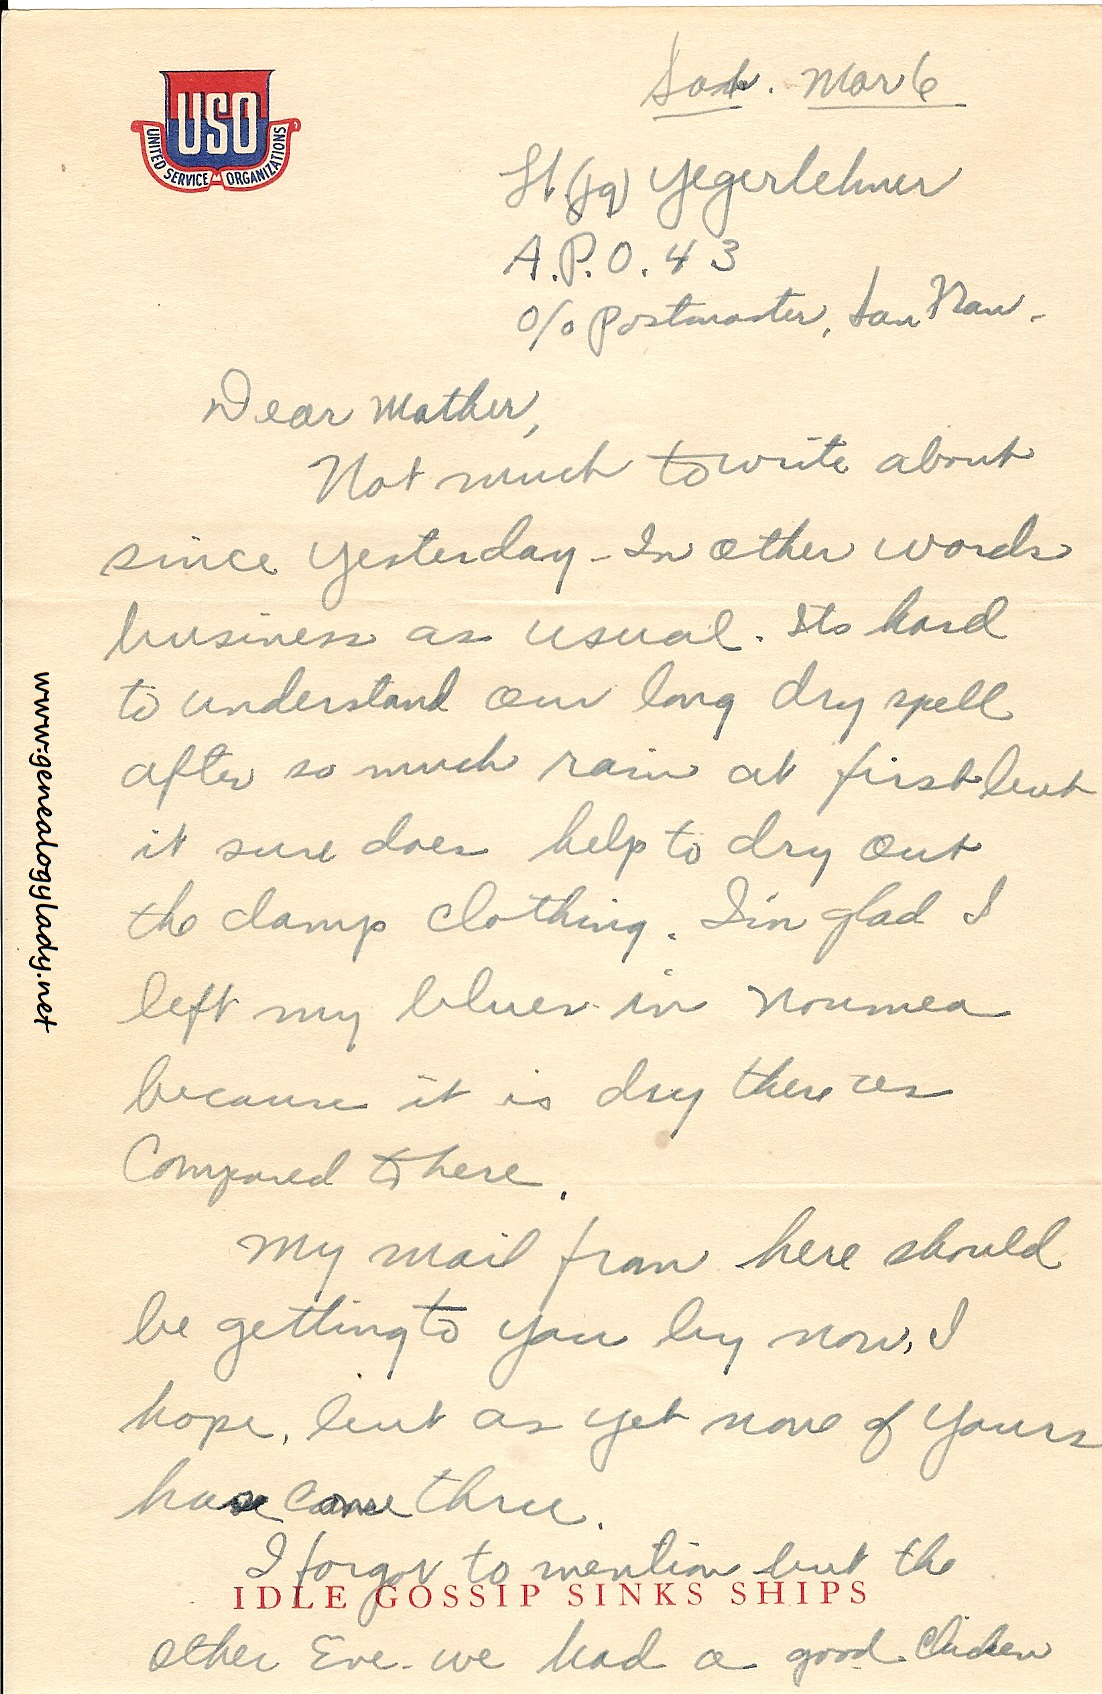 USO
UNITED SERVICE ORGANIZATIONS
Sat. Mar 6
Lt (jg) Yegerlehner
A.P.O. 43
c/o Postmaster, San Fran.
Dear Mother,
Not much to write about
since yesterday - In other words
business as usual. Its hard
to understand our long dry spell
after so much rain at first but
it sure does help to dry out
the damp clothing. I'm glad I
left my blues in Noumea
because it is dry there as
compared to here.
My mail from here should
be getting to you by now, I
hope, but as yet none of yours
have come thru.
I forgot to mention but the
IDLE GOSSIP SINKS SHIPS
other Eve. we had a good chicken
www.genealogylady.net